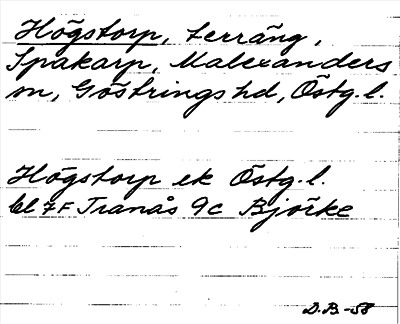 Högstorp, terräng,
Spakarp, Malexanders
sn, Göstrings hd, Östg. l.
Högstorp ek Östg. l.
bl 7F Tranås 9c Björke
D.B. -58